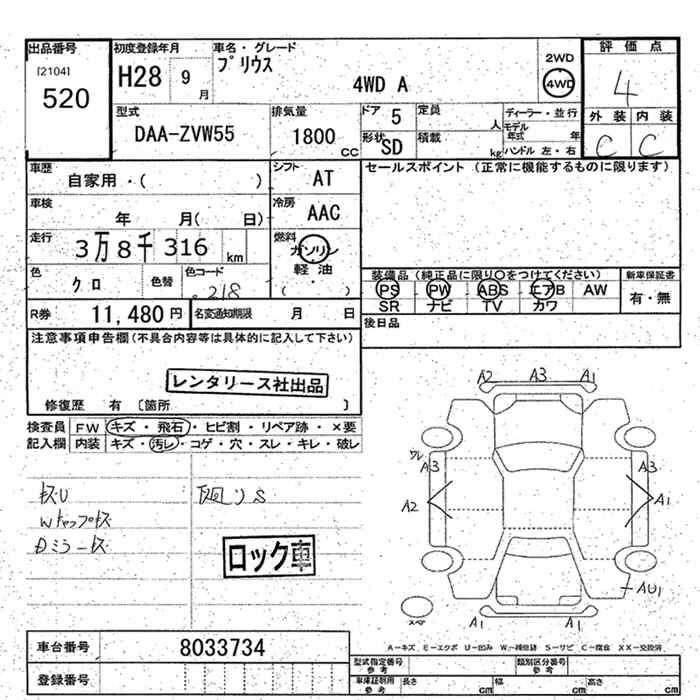 出品番号
[2104]
520
初度登録年月
H28 9 月
車名・グレード
プリウス
4WD A
2WD
4WD
評価点
4
外装 内装
C C
型式
DAA-ZVW55
排気量
1800 cc
ドア 5
形状 SD
定員 人
積載 kg
ディーラー・並行
モデル年式 年
ハンドル 左・右
車歴
自家用・( )
シフト
AT
車検
年 月( 日)
冷房
AAC
走行
3万8千316 km
燃料
ガソリン
軽油
( )
色
クロ
色替
色コード
218
R券
11,480円
名変通知期限 月 日
セールスポイント(正常に機能するものに限ります)
装備品(純正品に限り○をつけてください)
PS PW ABS エアB AW
SR ナビ TV カワ
新車保証書
有・無
後日品
注意事項申告欄(不具合内容等は具体的に記入して下さい)
レンタリース社出品
修復歴 有 [箇所 ]
検査員記入欄
FW キズ・飛石・ヒビ割・リペア跡・×要
内装 キズ・汚レ・コゲ・穴・スレ・キレ・破レ
キズU
Wトップキズ
Dミラーキズ
下廻りS
ロック車
A2 A3 A1
ワレ
A3 A3
A2 A1
AU1
A1 A1
スペア
A-キズ E-エクボ U-凹み W-補修跡 S-サビ C-腐食 XX-交換済
車台番号
8033734
登録番号
型式指定番号
参考
類別区分番号
参考
車庫証明用
参考
長さ cm 幅 cm 高さ cm